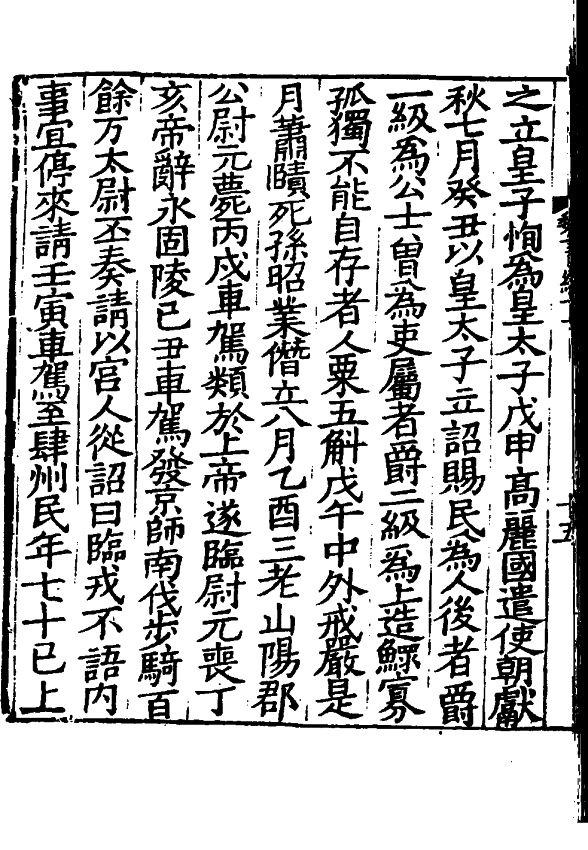 之立皇子恂為皇太子戊申髙麗國遣使朝獻
秋七月癸丑以皇太子立詔賜民為人後者爵
一級為公士曽為吏屬者爵二級為上造鰥寡
孤獨不能自存者人粟五斛戊午中外戒嚴是
月蕭賾死孫昭業僭立八月乙酉三老山陽郡
公尉元薨丙戍車駕類於上帝遂臨尉元喪丁
亥帝辭永固陵已丑車駕發京師南伐步騎百
餘万太尉丕奏請以宫人從詔曰臨戎不語内
事冝停來請壬寅車駕至肆州民年七十已上